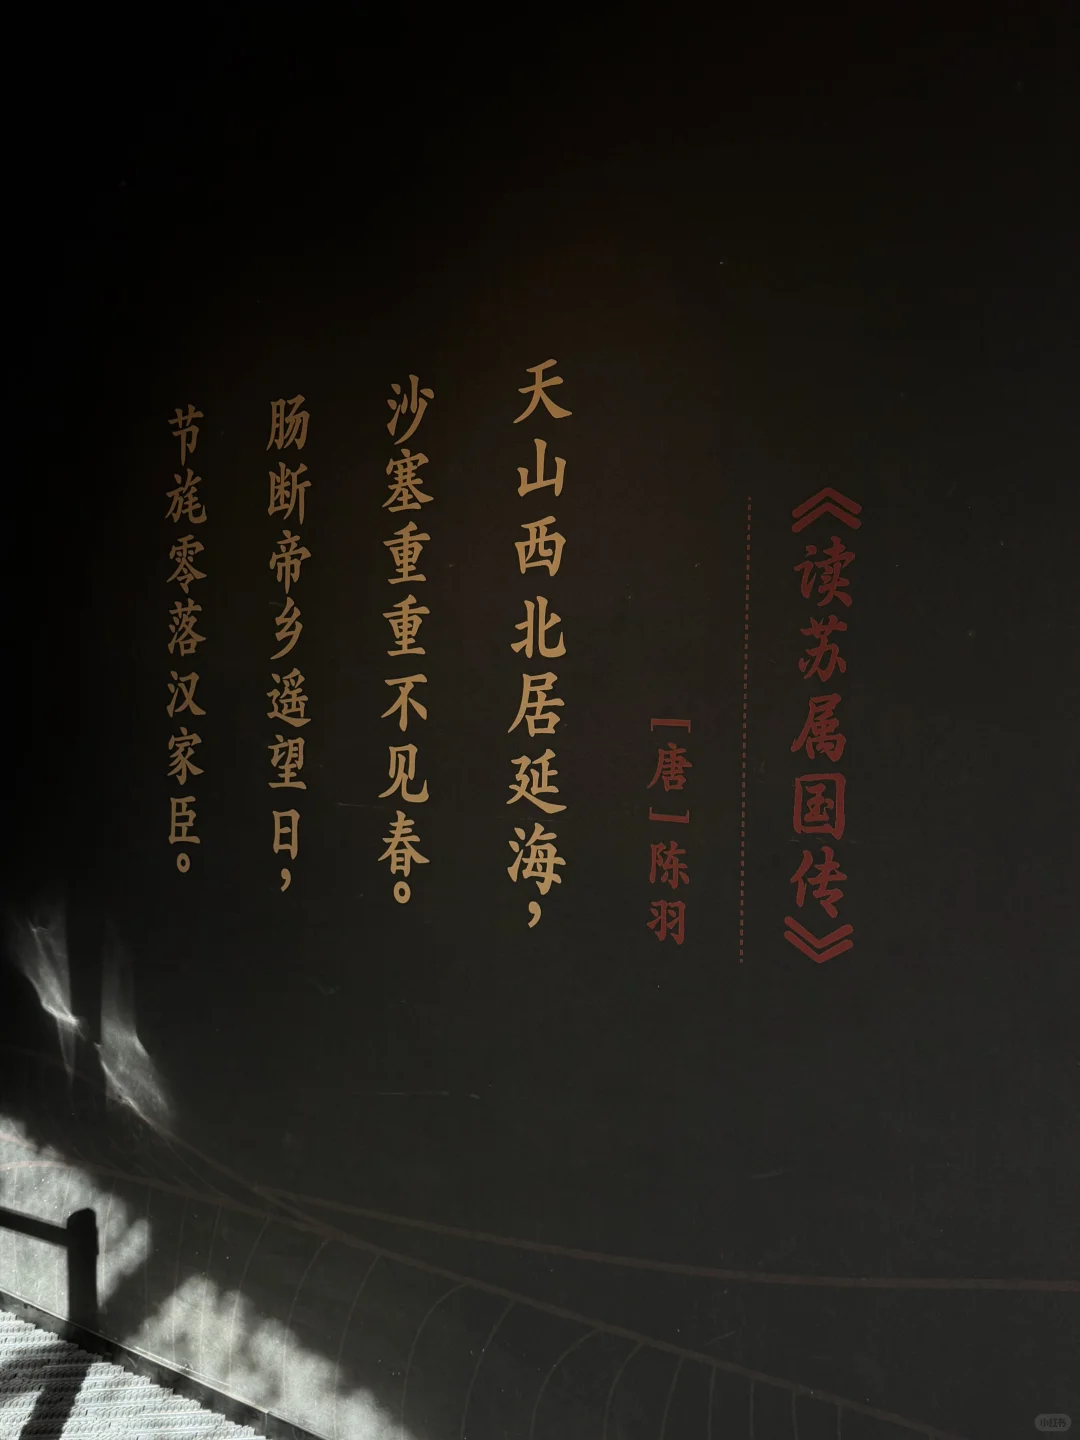 《读苏属国传》
[唐]陈羽
天山西北居延海，
沙塞重重不见春。
肠断帝乡遥望日，
节旄零落汉家臣。
小红书